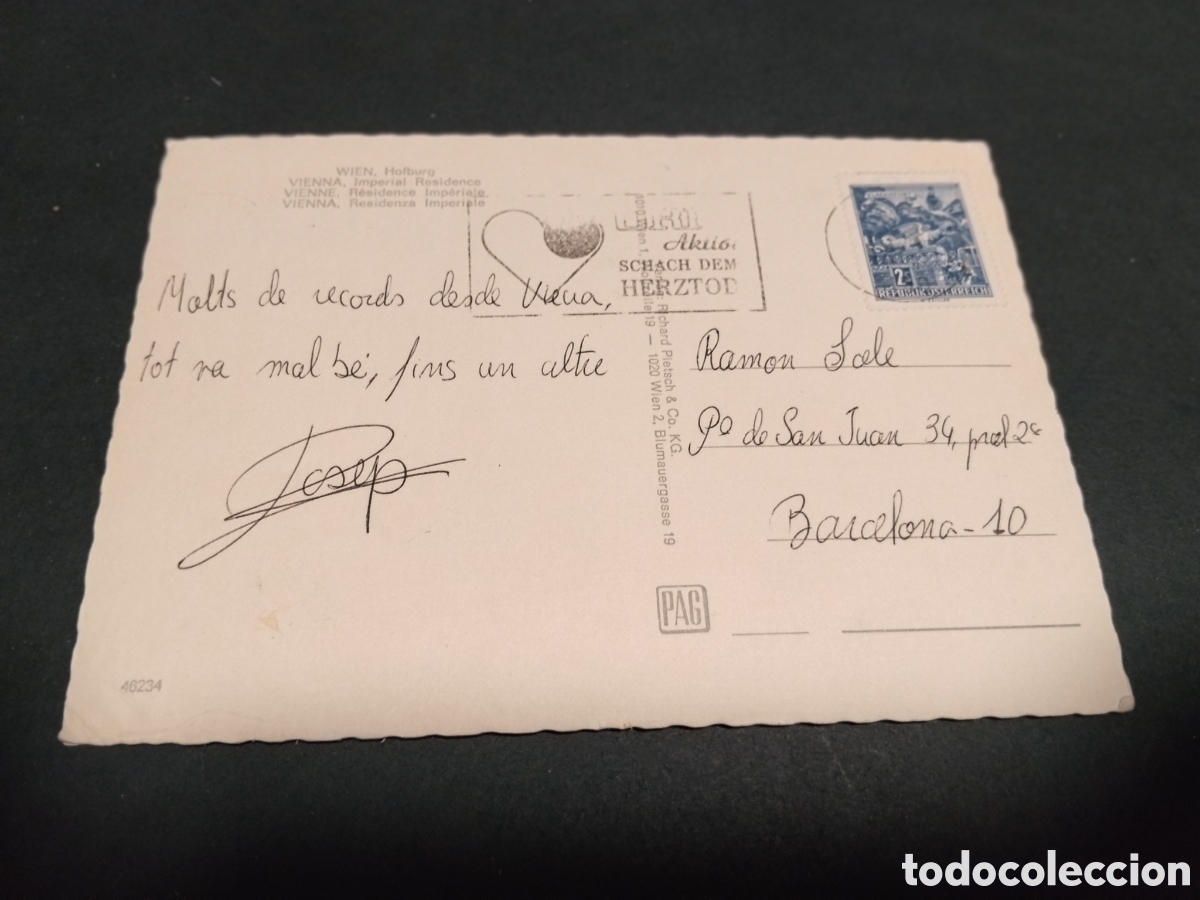 WIEN, Hofburg
VIENNA, Imperial Residence
VIENNE, Résidence Impériale
VIENNA, Residenza Imperiale
Aktio
SCHACH DEM
HERZTOD
2
REPUBLIK ÖSTERREICH
Molts de records desde Viena,
tot va mal bé, fins un altre
Josep
Richard Pietsch & Co. KG.
19 — 1020 Wien 2, Blumauergasse 19
Ramon Sole
Pº de San Juan 34, pral 2ª
Barcelona - 10
PAG
46234
todocoleccion